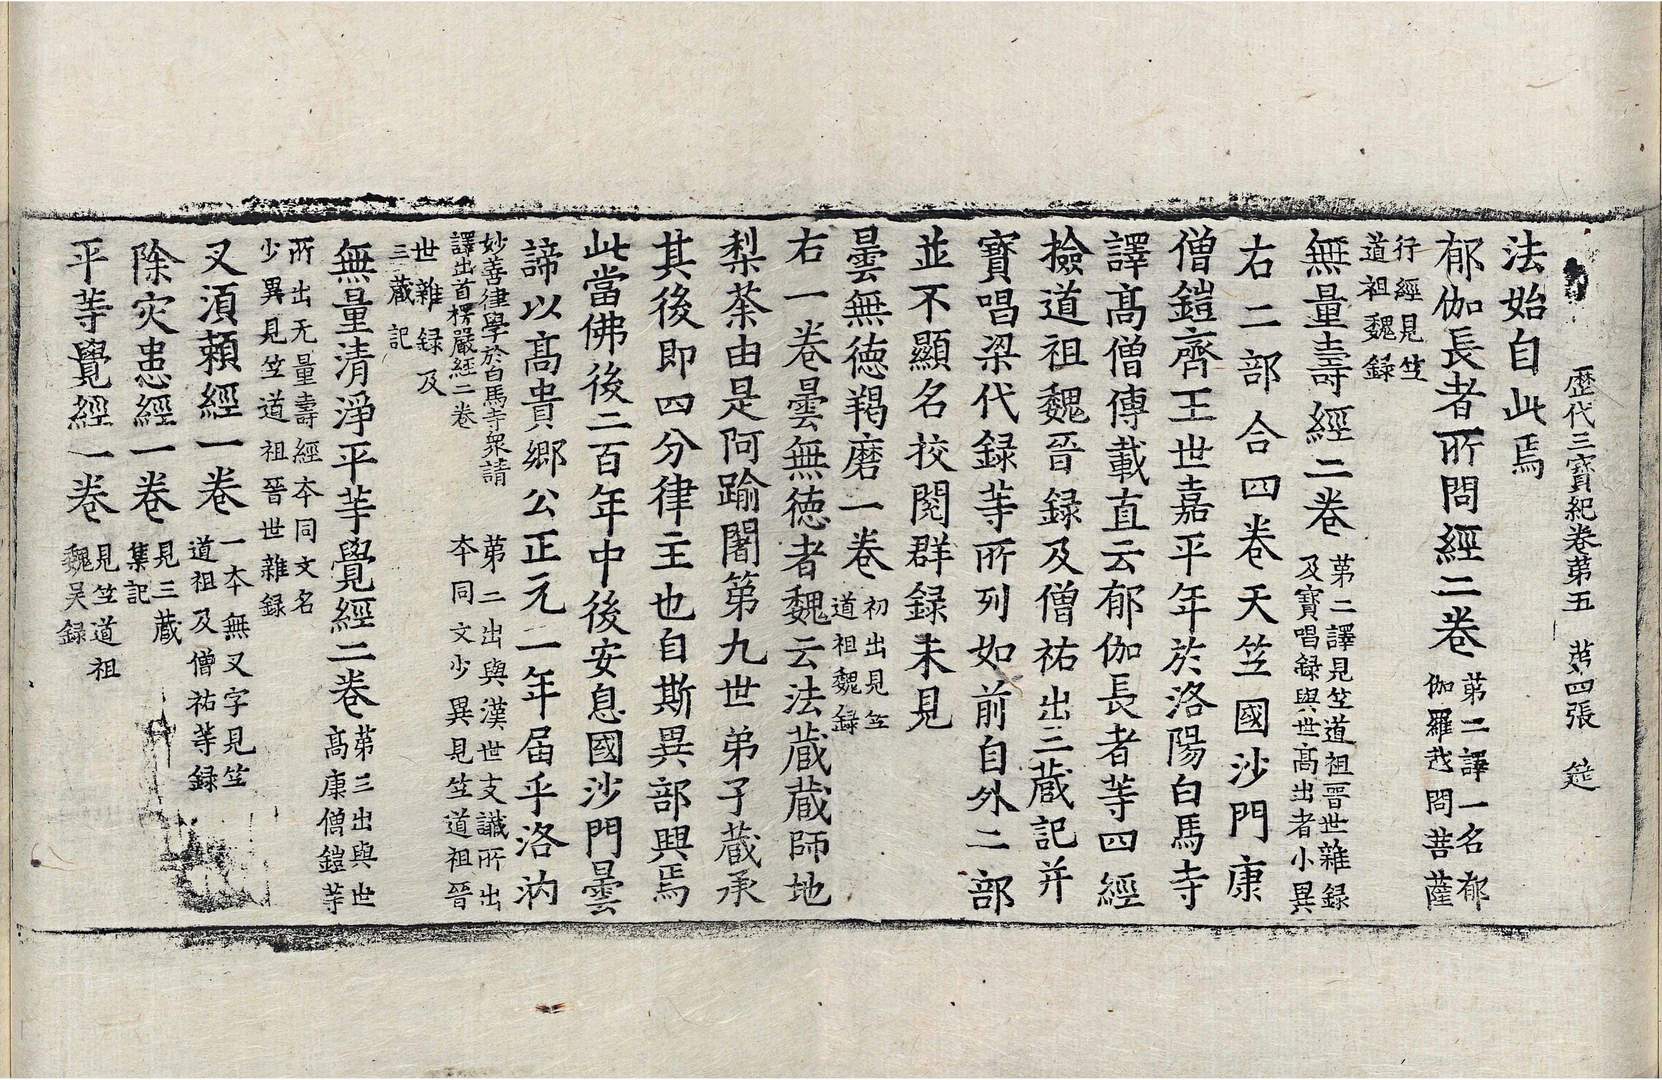 歷代三寶紀卷第五 苐四張 筵
法始自此焉
郁伽長者所問經二卷 苐二譯一名郁伽羅越問菩薩
行經見竺道祖魏録
無量壽經二卷 苐二譯見竺道祖晉世雜録及寶唱録與世髙出者小異
右二部合四卷天竺國沙門康
僧鎧齊王世嘉平年於洛陽白馬寺
譯髙僧傳載直云郁伽長者等四經
撿道祖魏晉録及僧祐出三藏記并
寶唱梁代録等所列如前自外二部
並不顯名挍閱群録未見
曇無德羯磨一卷 初出見竺道祖魏録
右一卷曇無德者魏云法藏藏師地
梨荼由是阿踰闍第九世弟子藏承
其後即四分律主也自斯異部興焉
此當佛後二百年中後安息國沙門曇
諦以髙貴郷公正元一年届乎洛汭
妙善律學於白馬寺衆請譯出首楞嚴經二卷 苐二出與漢世支讖所出本同文少異見竺道祖晉
世雜録及三藏記
無量清淨平等覺經二卷 苐三出與世髙康僧鎧等
所出无量壽經本同文名少異見竺道祖晉世雜録
又湏賴經一卷 一本無又字見竺道祖及僧祐等録
除灾患經一卷 見三藏集記
平等覺經一卷 見竺道祖魏吴録